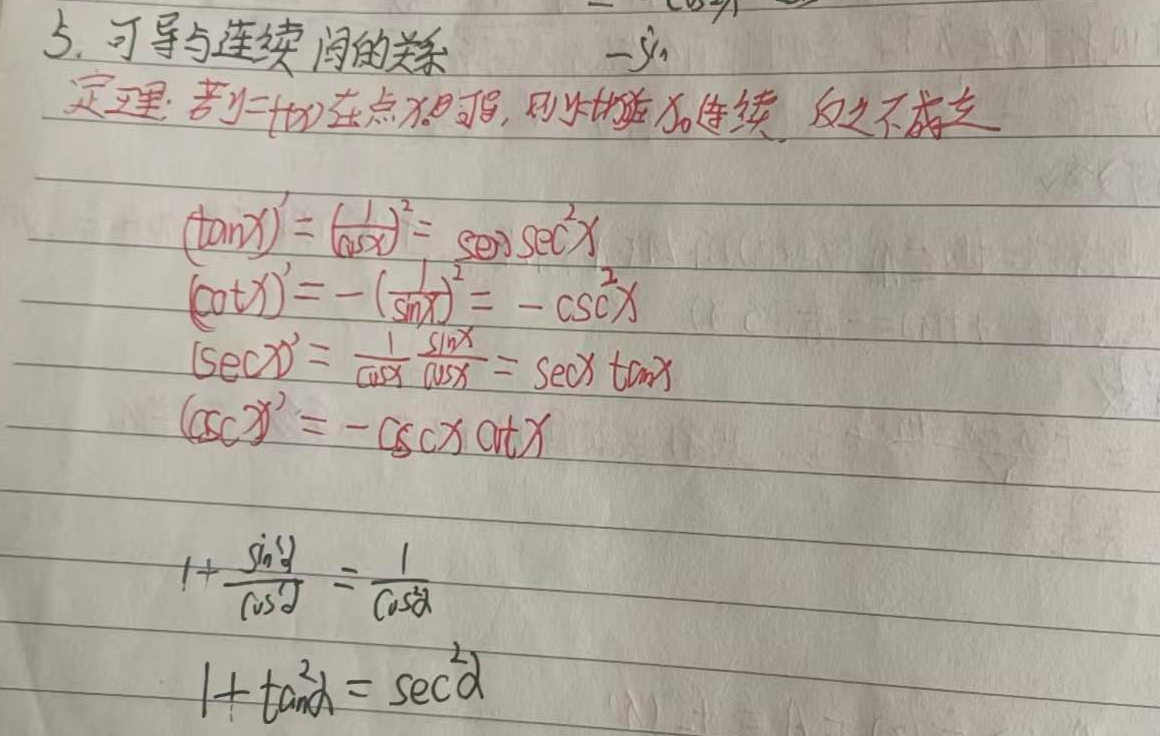 5. 可导与连续间的关系
-sin
定理: 若y=f(x)在点x₀可导, 则y=f(x)在x₀连续, 反之不成立
(tanx)' = (1/cosx)² = sec²x
(cotx)' = -(1/sinx)² = -csc²x
(secx)' = 1/cosx sinx/cosx = secx tanx
(cscx)' = -cscx cotx
1+ sin²α/cos²α = 1/cos²α
1+tan²α = sec²α